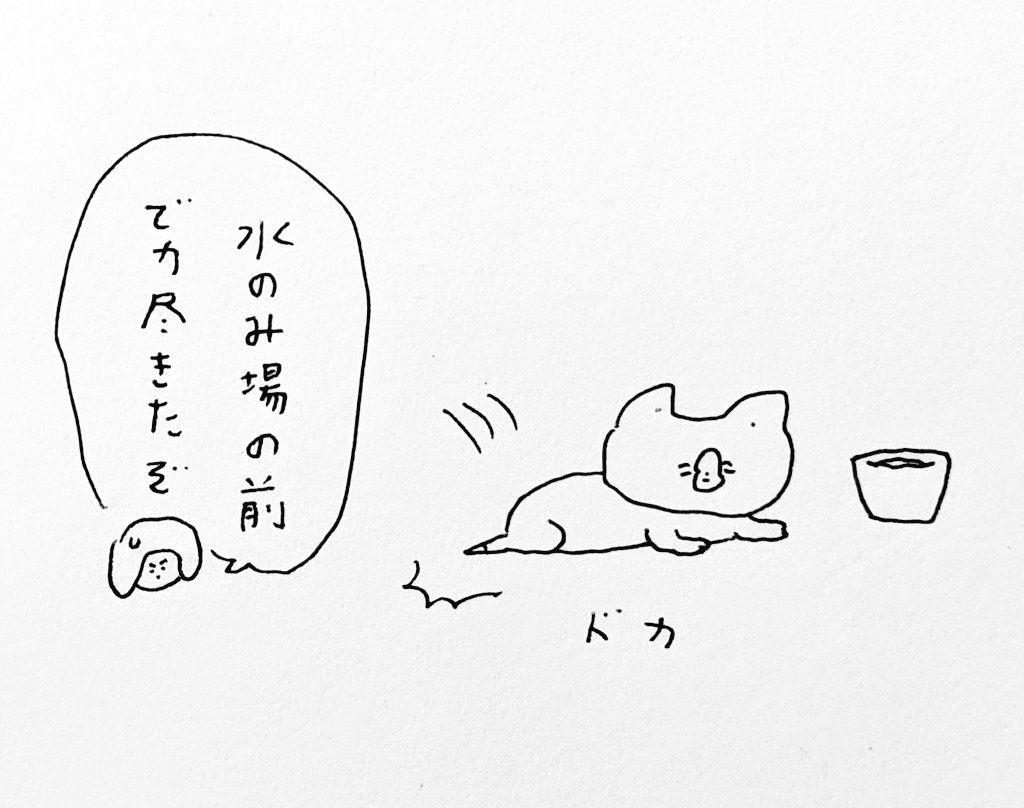 水のみ場の前
で力尽きたぞ
ドカ